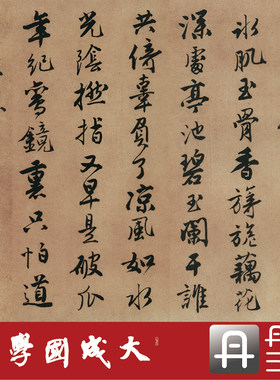 冰肌玉骨香旖旎藕花
深處亭池碧玉闌干誰
共倚辜負了凉風如水
光陰撚指又早是破瓜
年紀鸞鏡裏只怕道
大成國學
丹